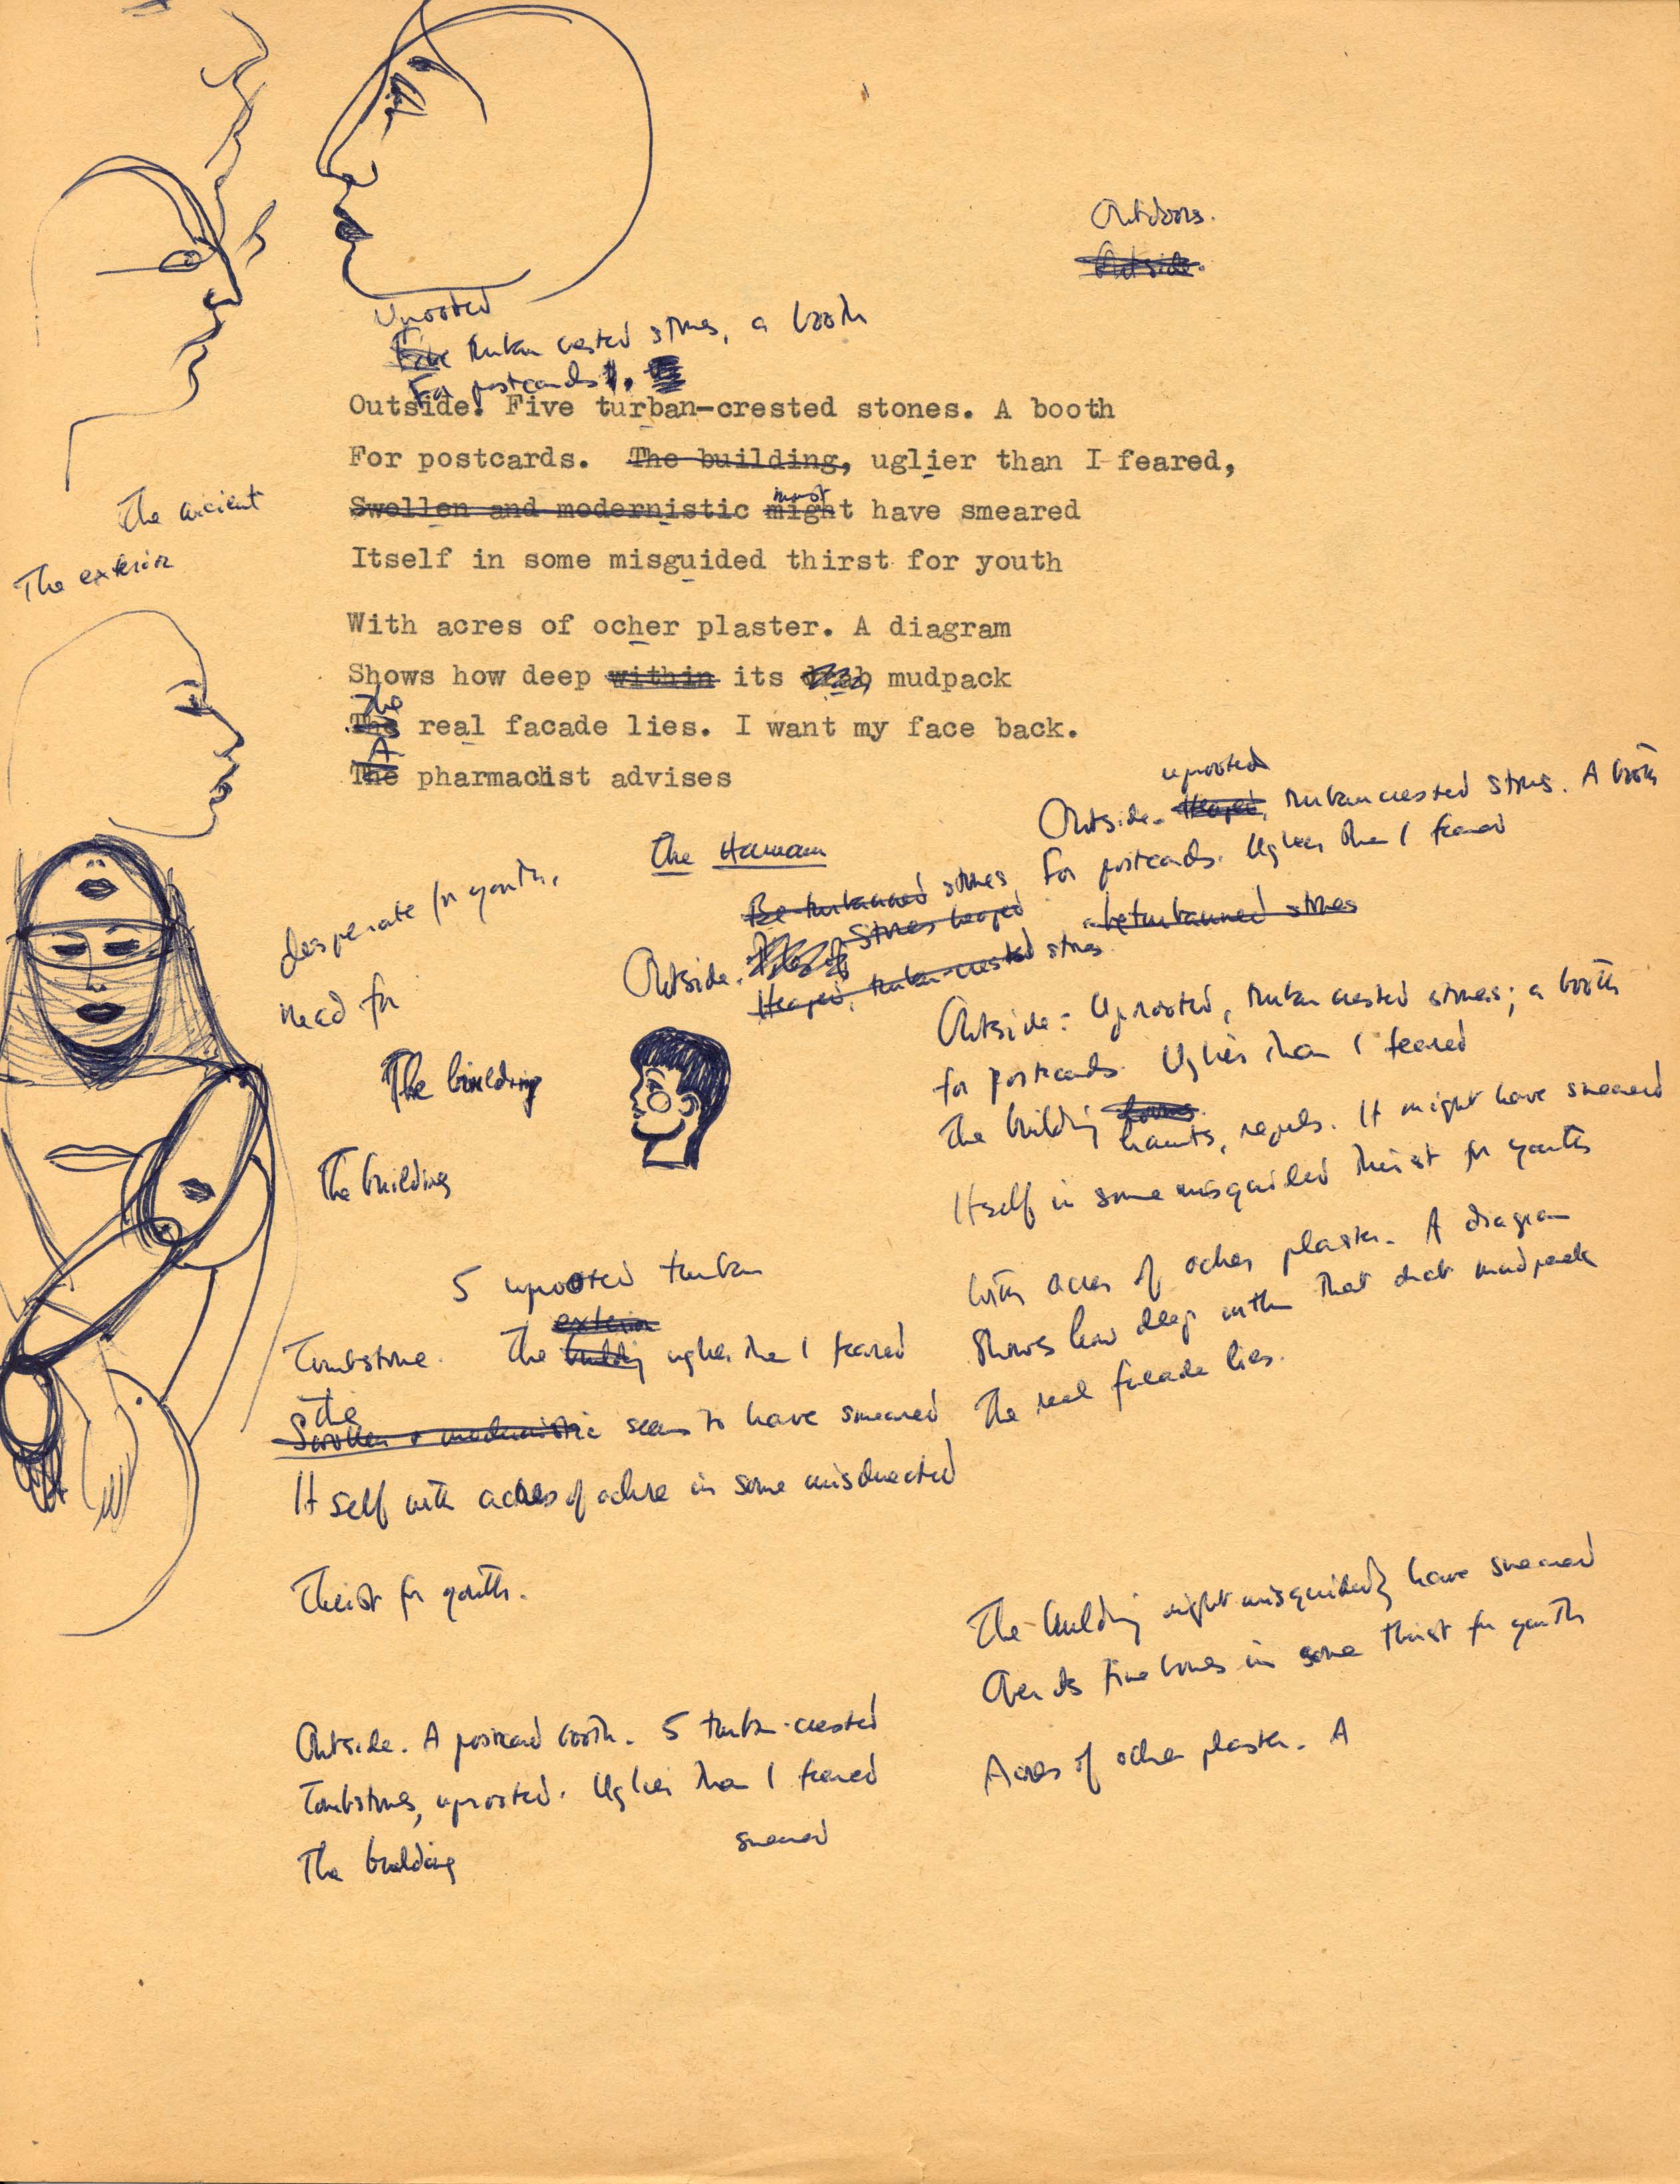 Outdoors.
Outside.
Uprooted
Five turban crested stones, a booth
For postcards.
Outside. Five turban-crested stones. A booth
For postcards. The building, uglier than I feared,
must
Swollen and modernistic might have smeared
Itself in some misguided thirst for youth
The ancient
The exterior
With acres of ocher plaster. A diagram
Shows how deep within its drab mudpack
The
real facade lies. I want my face back.
A
The pharmacist advises
uprooted
Outside. Heaped, turban crested stones. A booth
For postcards. Uglier than I feared
The Hamam
desperate for youth,
need for
Be-turbanned stones
Outside. Piles of Stones heaped
beturbanned stones
Heaped, turban-crested stones
Outside: Uprooted, turban crested stones; a booth
for postcards. Uglier than I feared
The building
haunts, repels. It might have smeared
Itself in some misguided thirst for youth
The building
The building
With acres of ocher plaster. A diagram
Shows how deep within that drab mudpack
The real facade lies.
5 uprooted turban
exterior
Tombstone. The building uglier than I feared
the
Swollen + modernistic seems to have smeared
Itself with acres of ochre in some misdirected
Thirst for youth.
The building might misguidedly have smeared
Over its fine bones in some thirst for youth
Acres of ocher plaster. A
Outside. A postcard booth. 5 turban-crested
Tombstones, uprooted. Uglier than I feared
The building
smeared